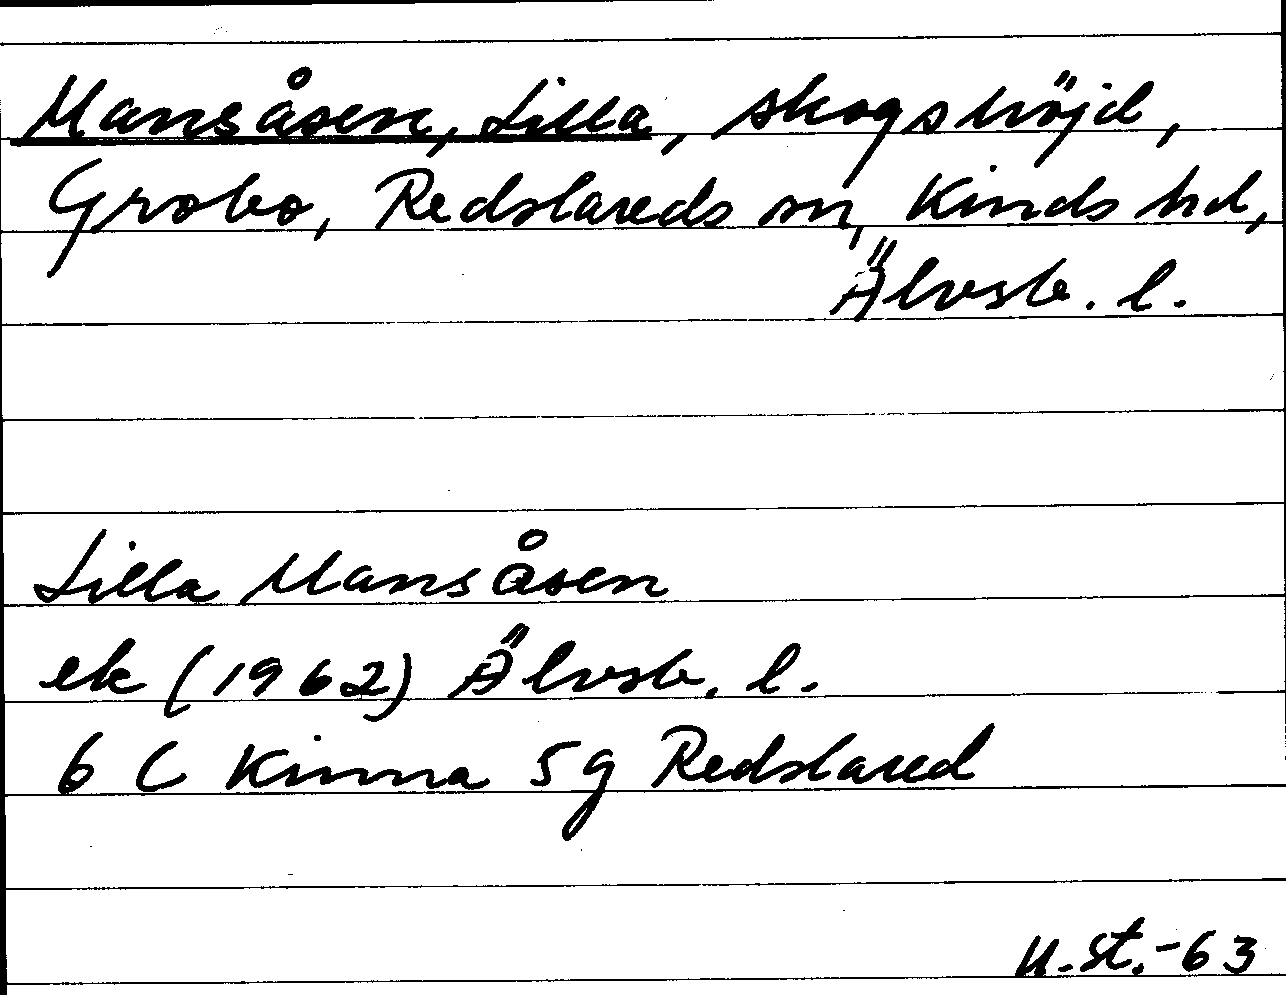 Mansåsen, Lilla, skogshöjd,
Grobo, Redslareds sn, Kinds hd,
Älvsb. l.
Lilla Mansåsen
ek (1962) Älvsb. l.
6 C Kinna 5g Redslared
U.St.-63